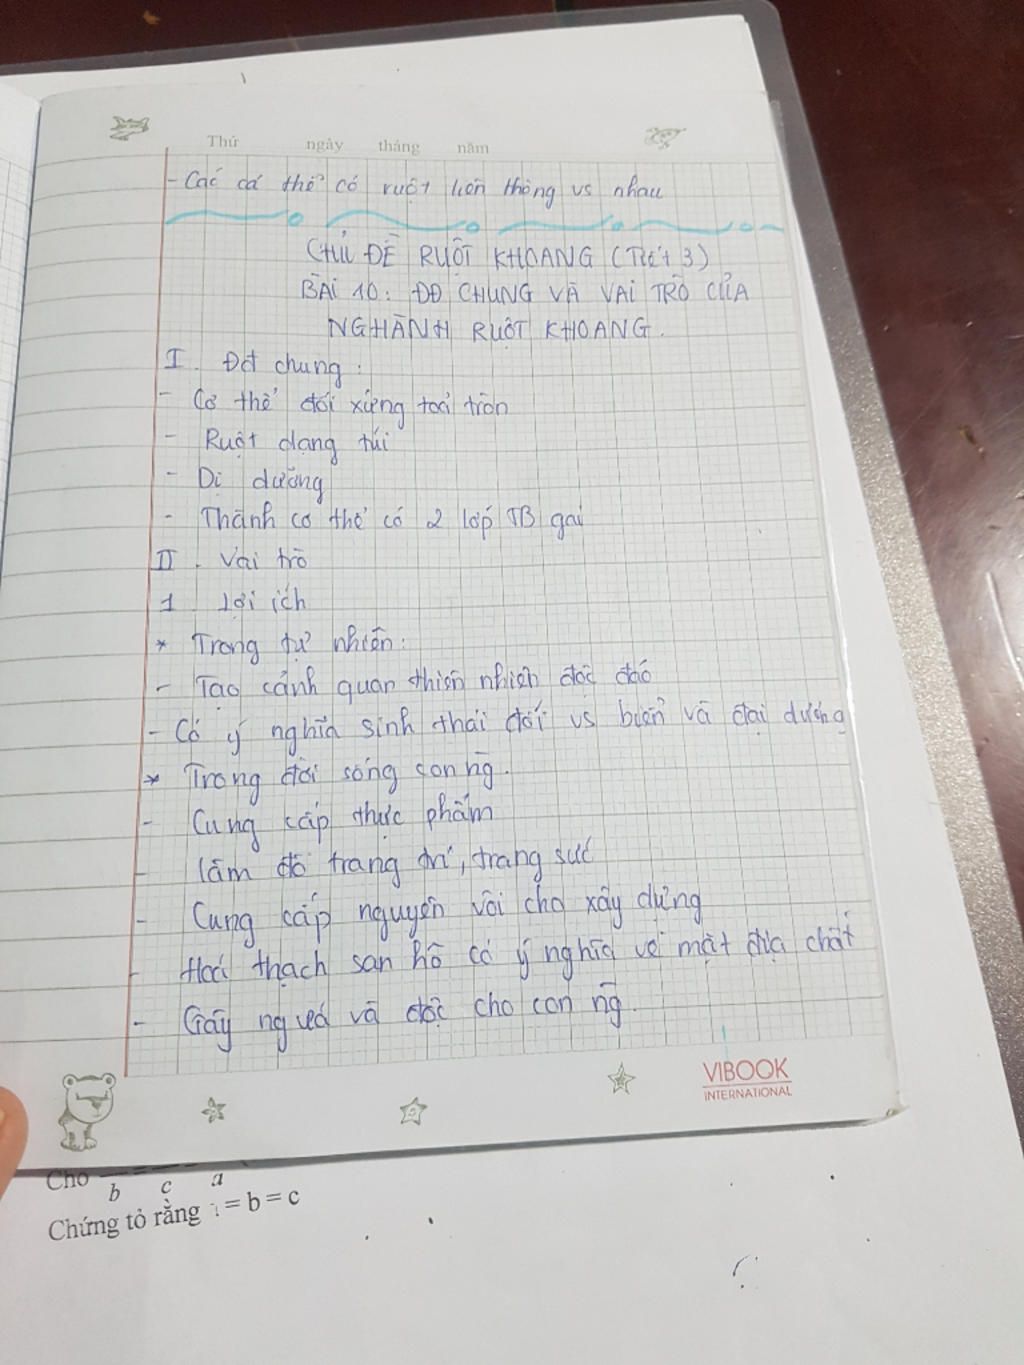 Thứ ngày tháng năm
- Các cá thể có ruột liên thông vs nhau
CHỦ ĐỀ RUỘT KHOANG (Tiết 3)
BÀI 10: ĐĐ CHUNG VÀ VAI TRÒ CỦA
NGHÀNH RUỘT KHOANG.
I. Đđ chung:
- Cơ thể đối xứng toả tròn
- Ruột dạng túi
- Dị dưỡng
- Thành cơ thể có 2 lớp TB gai
II. Vai trò
1 Lợi ích
* Trong tự nhiên:
- Tạo cảnh quan thiên nhiên độc đáo
- Có ý nghĩa sinh thái đối vs biển và đại dương
* Trong đời sống con ng̃.
- Cung cấp thực phẩm
- làm đồ trang trí, trang sức
- Cung cấp nguyên vôi cho xây dựng
- Hoá thạch san hô có ý nghĩa về mặt địa chất
- Gây ngứa và độc cho con ng̃.
VIBOOK
INTERNATIONAL
Cho
b c a
Chứng tỏ rằng = b = c